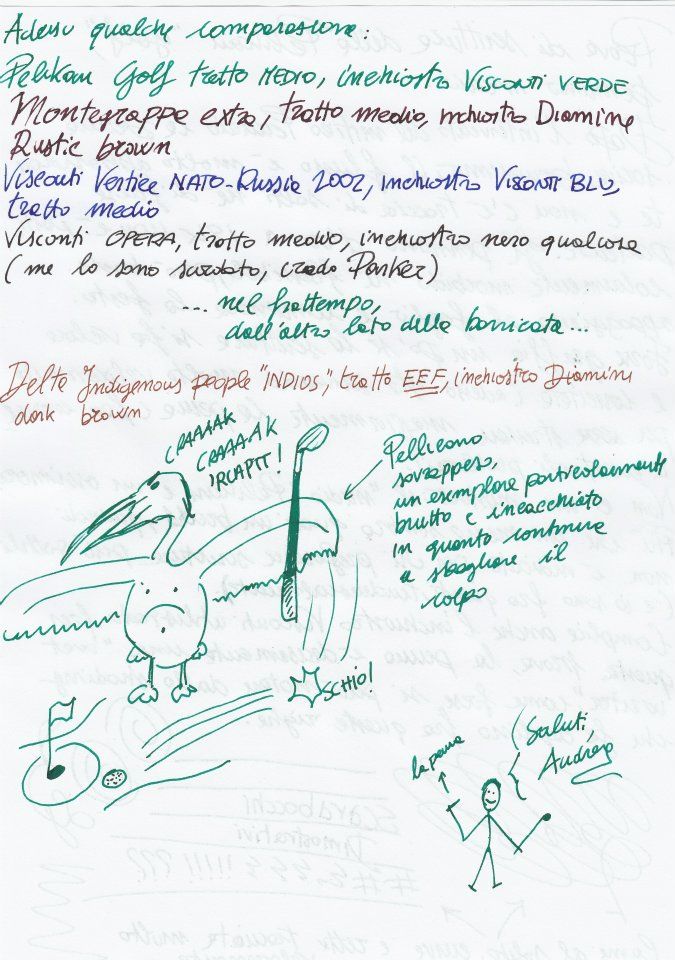 Adesso qualche comparazione:
Pelikan Golf tratto MEDIO, inchiostro VISCONTI VERDE
Montegrappa extra, tratto medio, inchiostro Diamine
Rustic brown
Visconti Vertice NATO-Russia 2002, inchiostro VISCONTI BLU,
tratto medio
Visconti OPERA, tratto medio, inchiostro nero qualcosa
(me lo sono scordato, credo Parker)
... nel frattempo,
dall'altro lato della barricata...
Delta Indigenous people "INDIOS", tratto EEF, inchiostro Diamine
dark brown
CRAAAAK
CRAAAAK
!RCAPTT!
Pellicano
sovrappeso,
un esemplare particolarmente
brutto e incacchiato
in quanto continua
a sbagliare il
colpo
SCHIO!
la penna
Saluti,
Andrea